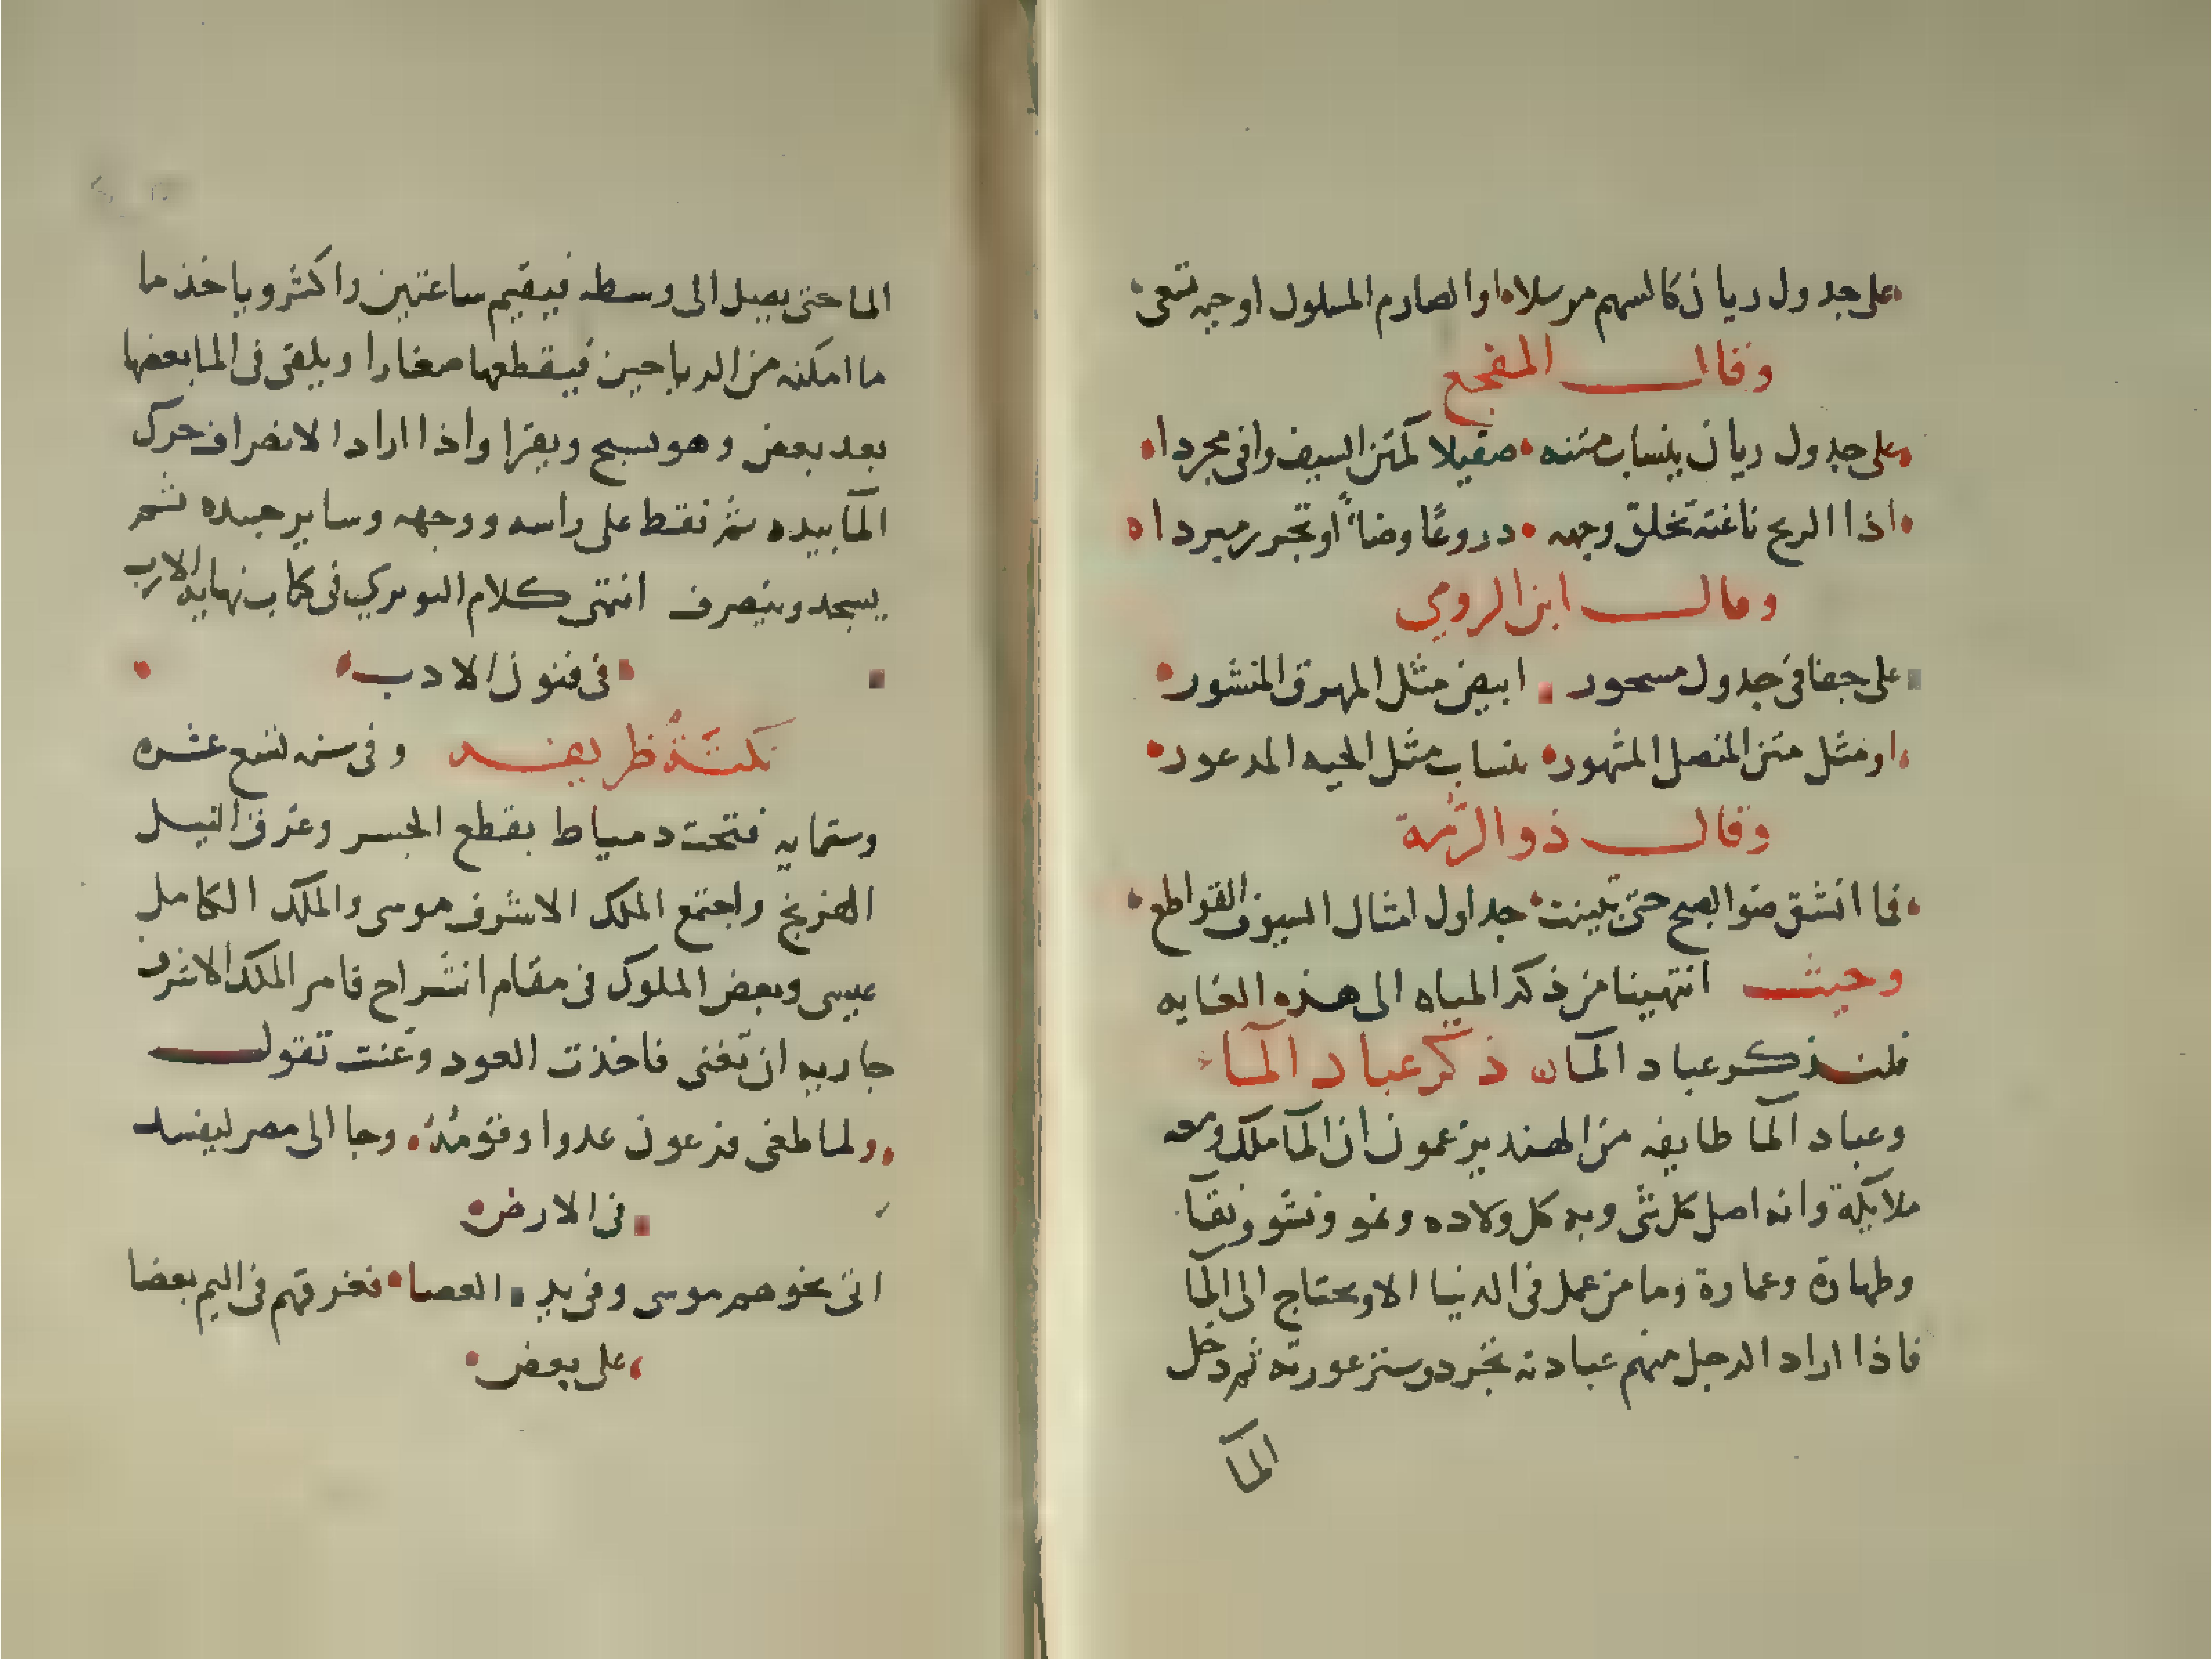 على جدول ريان كالسهم مرسلا او الصارم المسلول او حيه تسعى
وقال المفجع
على جدول ريان ينساب متنه صقيلا كمتن السيف وافى مجردا
اذا الريح ناغته تخلق وجهه دروعًا وضاً او تجبر مبردا
وقال ابن الرومي
على حفافى جدول مسحور ابيض مثل المهرق المنشور
او مثل متن المنصل المشهور ينساب مثل الحيه المدعور
وقال ذو الرُّمة
فما انشق ضو الصبح حتى تبينت جداول امثال السيوف القواطع
وحيث انتهينا من ذكر المياه الى هذه الغايه
فلنذكر عباد المآ ذكر عباد المآء
وعباد المآ طايفه من الهند يزعمون ان المآ ملك ومعه
ملايكة وانه اصل كل شى وبه كل ولاده ونمو ونشو وبقآ
وطهارة وعمارة وما من عمل فى الدنيا الا ويحتاج الى المآ
فاذا اراد الرجل منهم عبادته تجرد وستر عورته ثم دخل
المآ
الما حتى يصل الى وسطه فيقيم ساعتين واكثر وياخذ ما
ما امكنه من الرياحين فيقطعها صغارا ويلقى فى الما بعضها
بعد بعض وهو يسبح ويقرا واذا اراد الانصراف حرك
المآ بيده ثم نقط على راسه ووجهه وساير جسده ثم
يسجد وينصرف انتهى كلام النويري فى كتاب نهاية الارب
فى فنون الادب
نكتة ظريفه وفى سنه تسع عشره
وستمايه فتحت دمياط بقطع الجسر وغرق النيل
الفرنج واجتمع الملك الاشرف موسى والملك الكامل
عيسى وبعض الملوك فى مقام انشراح فامر الملك الاشرف
جاريه ان تغنى فاخذت العود وغنت تقول
ولما طغى فرعون عدوا وقومُهُ وجا الى مصر ليفسد
فى الارض
اتى نحوهم موسى وفى يد العصا فغرقهم فى اليم بعضا
على بعض